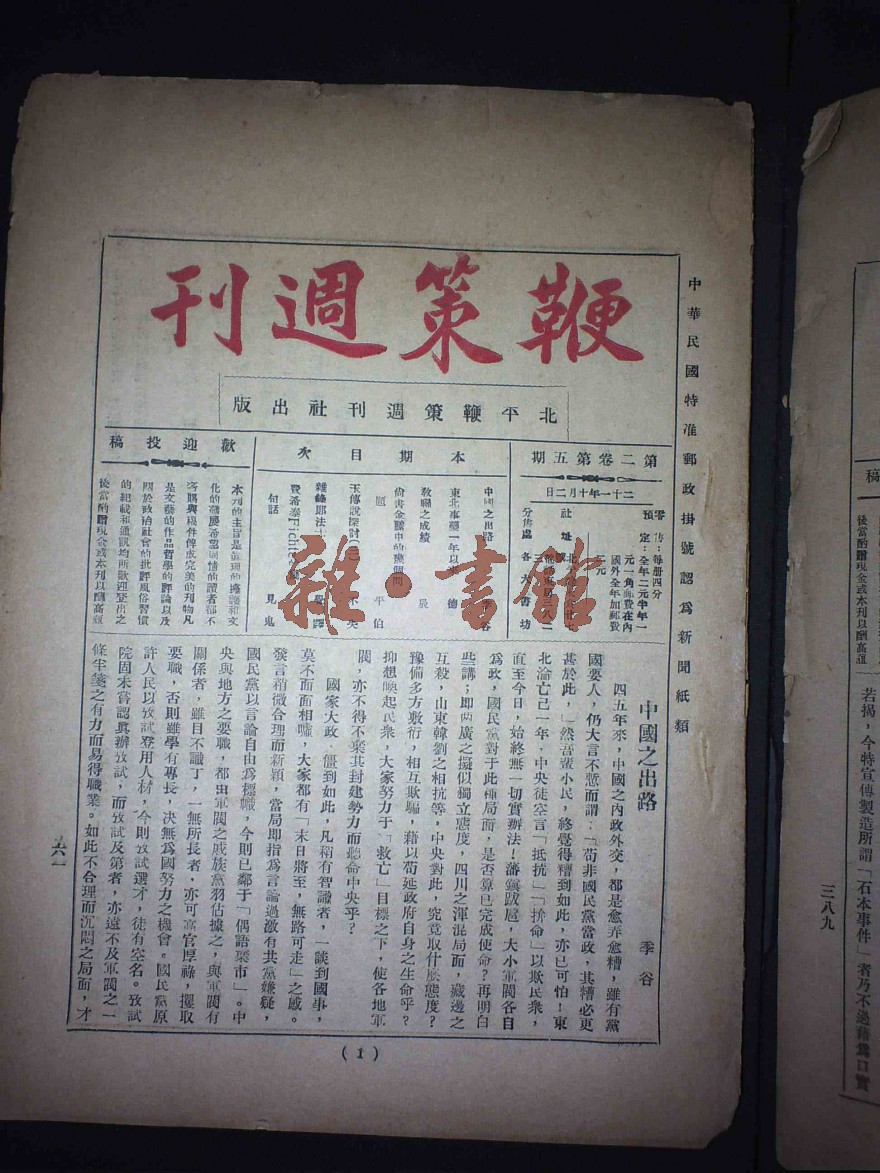 中華民國特准郵政掛號認為新聞紙類
鞭策週刊
北平鞭策週刊社出版
第二卷第五期
二十一年十月二日
零售：每册四分
預定：全年二元半年一
元一角郵費在內
國外全年加郵費
元
社址
分售處 各大書坊
本期目次
中國之出路 季谷
東北事變一年以
教聯之成績 辰
偷書金膽中的幾個問
題 平伯
玉傳說探討(三)
雜
費希泰Fichte
句話 見鬼
歡迎投稿
本刊的主旨是真理的擁護和文
化的
客賜與稿件俾成完美的刊物凡
是文藝的作品哲學的評論以及
關於政治社會的批評風俗習慣
的記載和通訊均所歡迎登出之
後當酌贈現金或本刊以酬高誼
雜·書館
中國之出路
季谷
四五年來，中國之內政外交，都是愈弄愈糟，雖有黨
國要人，仍大言不慙而謂：「苟非國民黨當政，其糟必更
甚於此，」然吾輩小民，終覺得糟到如此，亦已可怕！東
北淪亡已一年，中央徒空言「抵抗」「拚命」以欺民衆，
直至今日，始終無一切實辦法！藩鎭跋扈，大小軍閥各自
爲政，國民黨對于此種局面，是否算已完成使命？再明白
些講；即兩廣之擬似獨立態度，四川之渾混局面，藏邊之
互殺，山東韓劉之相抗等，中央對此，究竟取什麽態度？
豫備多方敷衍，相互欺騙，藉以苟延政府自身之生命乎？
抑想喚起民衆，大家努力于「救亡」目標之下，使各地軍
閥，亦不得不棄其封建勢力而聽命中央乎？
國家大政，僵到如此，凡稍有智識者，一談到國事，
莫不面面相噓，大家都有「末日將至，無路可走」之感。
發言稍微合理而新穎，當局即指爲言論過激有共黨嫌疑，
國民黨以言論自由爲標幟，今則已鄰于「偶語棄市」。中
央與地方之要職，都由軍閥之戚族黨羽佔據之，與軍閥有
關係者，雖目不識丁，一無所長者，亦可高官厚祿，攫取
要職，否則雖學有專長，決無爲國努力之機會。國民黨原
許人民以攷試登用人材，今則攷試選才，徒有空名。攷試
院固未嘗認眞辦攷試，而攷試及第者，亦遠不及軍閥之一
條半箋之有力而易得職業。如此不合理而沉悶之局面，才
六一
(1)
稿
後當酌贈現金或本刊以酬高誼
若揭，今特宣傳製造所謂「石本事件」者乃不過藉爲口實
三八九